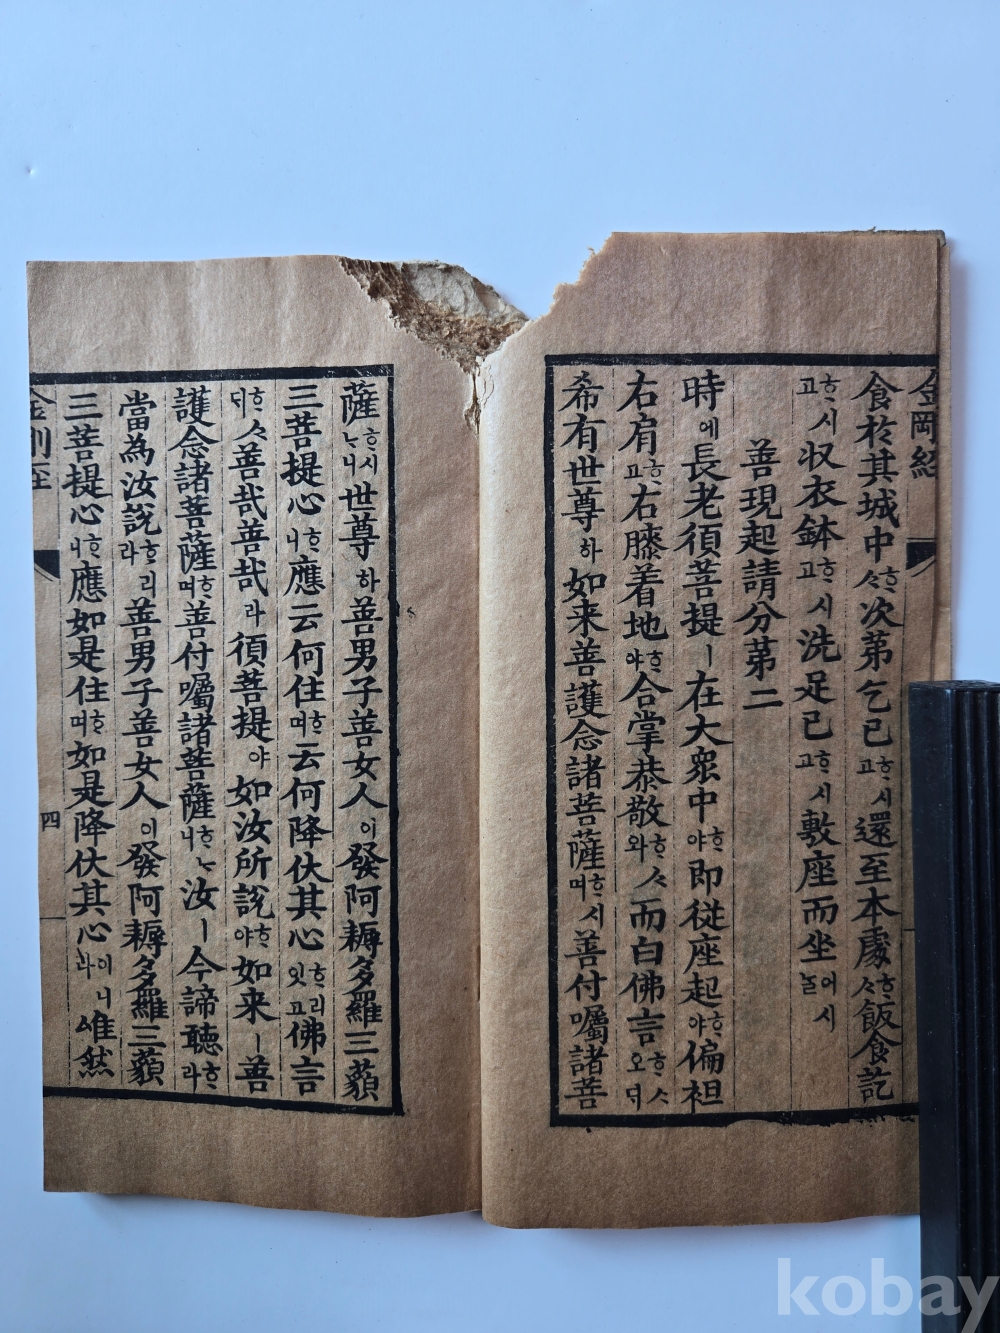 金剛經
食於其城中ᄒᆞᄉᆞ次第乞已ᄒᆞ시고還至本處ᄒᆞᄉᆞ飯食訖
ᄒᆞ시고収衣鉢ᄒᆞ시고洗足已ᄒᆞ시고敷座而坐어시놀
善現起請分第二
時에長老須菩提ㅣ在大衆中ᄒᆞ야即從座起ᄒᆞ야偏袒
右肩ᄒᆞ고右膝着地ᄒᆞ야合掌恭敬ᄒᆞᄉᆞ와而白佛言ᄒᆞᄉᆞ오ᄃᆡ
希有世尊하如来善護念諸菩薩ᄒᆞ시며善付囑諸菩
薩ᄒᆞ시ᄂᆞ니世尊하善男子善女人이發阿耨多羅三藐
三菩提心ᄒᆞ니應云何住ᄒᆞ며云何降伏其心ᄒᆞ리잇고佛言
ᄒᆞᄉᆞᄃᆡ善哉善哉라須菩提야如汝所說ᄒᆞ야如来ㅣ善
護念諸菩薩ᄒᆞ며善付囑諸菩薩ᄒᆞᄂᆞ니汝ㅣ今諦聽ᄒᆞ라
當為汝說ᄒᆞ리라善男子善女人이發阿耨多羅三藐
三菩提心ᄒᆞ니應如是住ᄒᆞ며如是降伏其心이니라唯然
金剛經
四
kobay